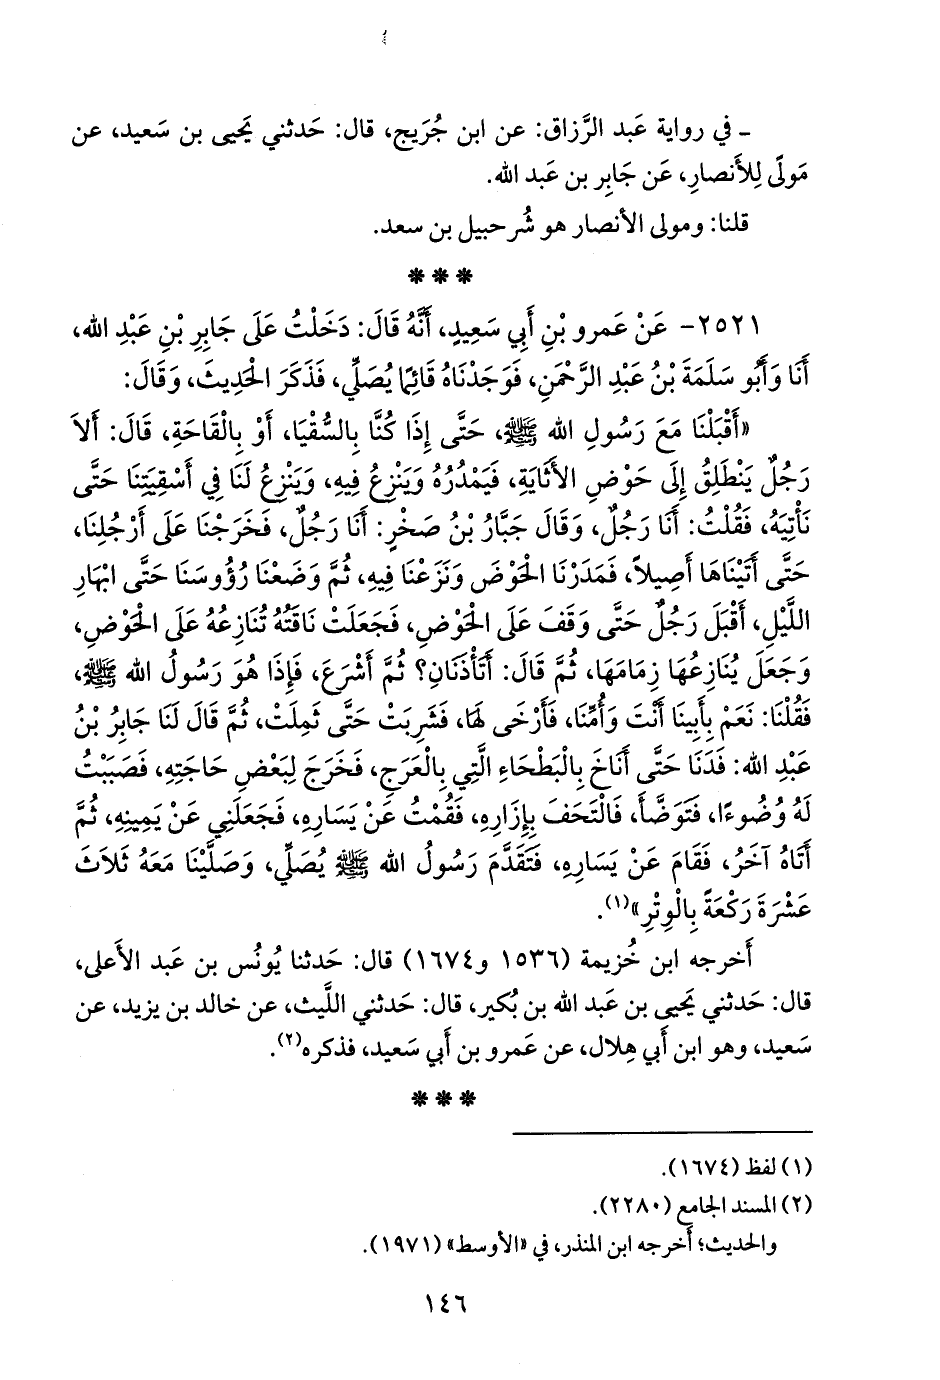 ـ في رواية عَبد الرَّزاق: عن ابن جُرَيج، قال: حَدثني يَحيى بن سَعيد، عن
مَولًى لِلأَنصارِ، عَن جَابِر بن عَبد الله.
قلنا: ومولى الأنصار هو شُرحبيل بن سعد.
* * *
٢٥٢١- عَنْ عَمرو بْنِ أَبِي سَعِيدٍ، أَنَّهُ قَالَ: دَخَلْتُ عَلَى جَابِرِ بْنِ عَبْدِ الله،
أَنَا وَأَبُو سَلَمَةَ بْنُ عَبْدِ الرَّحْمَنِ، فَوَجَدْنَاهُ قَائِمًا يُصَلِّي، فَذَكَرَ الْحَدِيثَ، وَقَالَ:
«أَقْبَلْنَا مَعَ رَسُولِ الله ﷺ، حَتَّى إِذَا كُنَّا بِالسُّقْيَا، أَوْ بِالْقَاحَةِ، قَالَ: أَلاَ
رَجُلٌ يَنْطَلِقُ إِلَى حَوْضِ الأَثَايَةِ، فَيَمْدُرُهُ وَيَنْزِعُ فِيهِ، وَيَنْزِعُ لَنَا فِي أَسْقِيَتِنَا حَتَّى
نَأْتِيَهُ، فَقُلْتُ: أَنَا رَجُلٌ، وَقَالَ جَبَّارُ بْنُ صَخْرٍ: أَنَا رَجُلٌ، فَخَرَجْنَا عَلَى أَرْجُلِنَا،
حَتَّى أَتَيْنَاهَا أَصِيلاً، فَمَدَرْنَا الْحَوْضَ وَنَزَعْنَا فِيهِ، ثُمَّ وَضَعْنَا رُؤُوسَنَا حَتَّى ابْهَارِ
اللَّيْلِ، أَقْبَلَ رَجُلٌ حَتَّى وَقَفَ عَلَى الْحَوْضِ، فَجَعَلَتْ نَاقَتُهُ تُنَازِعُهُ عَلَى الْحَوْضِ،
وَجَعَلَ يُنَازِعُهَا زِمَامَهَا، ثُمَّ قَالَ: أَتَأْذَنَانِ؟ ثُمَّ أَشْرَعَ، فَإِذَا هُوَ رَسُولُ الله ﷺ،
فَقُلْنَا: نَعَمْ بِأَبِينَا أَنْتَ وَأُمِّنَا، فَأَرْخَى لَهَا، فَشَرِبَتْ حَتَّى ثَمِلَتْ، ثُمَّ قَالَ لَنَا جَابِرُ بْنُ
عَبْدِ الله: فَدَنَا حَتَّى أَنَاخَ بِالْبَطْحَاءِ الَّتِي بِالْعَرَجِ، فَخَرَجَ لِبَعْضِ حَاجَتِهِ، فَصَبَبْتُ
لَهُ وُضُوءًا، فَتَوَضَّأَ، فَالْتَحَفَ بِإِزَارِهِ، فَقُمْتُ عَنْ يَسَارِهِ، فَجَعَلَنِي عَنْ يَمِينِهِ، ثُمَّ
أَتَاهُ آخَرُ، فَقَامَ عَنْ يَسَارِهِ، فَتَقَدَّمَ رَسُولُ الله ﷺ يُصَلِّي، وَصَلَّيْنَا مَعَهُ ثَلاَثَ
عَشْرَةَ رَكْعَةً بِالْوِتْرِ»(١).
أَخرجه ابن خُزيمة (١٥٣٦ و١٦٧٤) قال: حَدثنا يُونُس بن عَبد الأَعلى،
قال: حَدثني يَحيى بن عَبد الله بن بُكير، قال: حَدثني الليث، عن خالد بن يزيد، عن
سَعيد، وهو ابن أَبي هِلال، عن عَمرو بن أَبي سَعيد، فذكره(٢).
* * *
(١) لفظ (١٦٧٤).
(٢) المسند الجامع (٢٢٨٠).
والحديث؛ أَخرجه ابن المنذر، في «الأوسط» (١٩٧١).
١٤٦